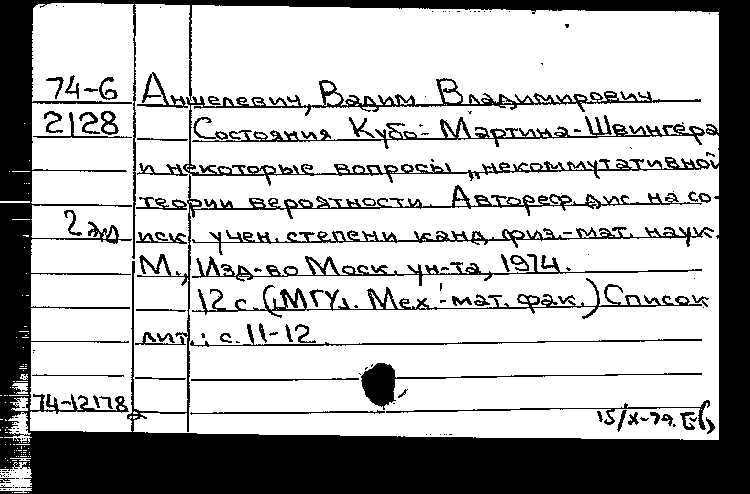 74-6 Аншелевич, Вадим Владимирович
2128 Состояния Кубо-Мартина-Швингера
и некоторые вопросы „некоммутативной
теории вероятности. Автореф. дис. на со-
2 экз иск. учен. степени канд. физ.-мат. наук.
М., Изд-во Моск. ун-та, 1974.
12 с. (МГУ. Мех.-мат. фак.) Список
лит.: с. 11-12.
74-12178
15/X-74.